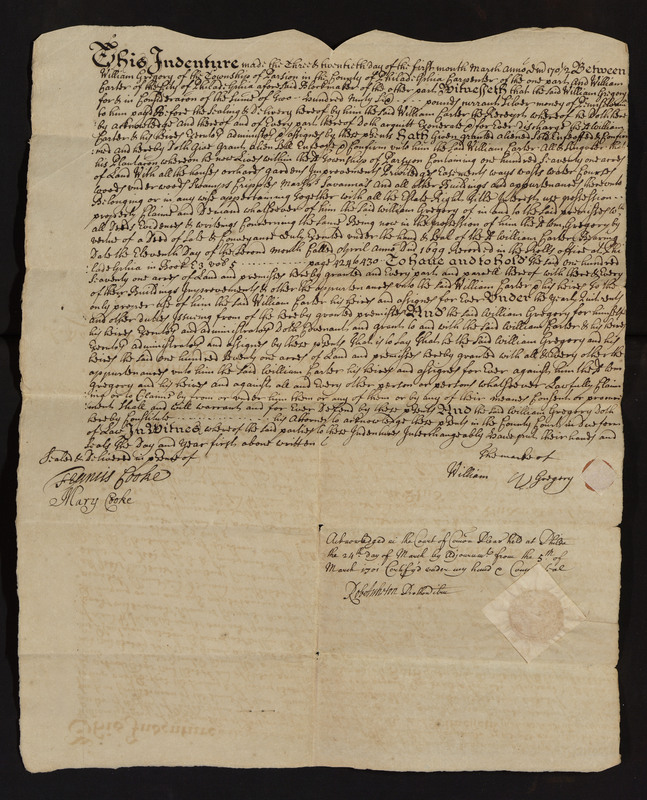 This Indenture made the Three & twentieth day of the first month March Anno Dm 1701/2 Between
William Gregory of the Township of in the County of Philadelphia Carpenter of the one part And William
Carter of the City of Philadelphia aforesaid Blockmaker of the other part Witnesseth that the said William Gregory
for & in Consideration of the Sume of Two hundred ninty pounds Currant silver money of Pensilvania
to him paid before the Sealing & Delivery hereof by him the said William Carter the Receipt whereof he doth here
by acknowledge and thereof and of Every part thereof doth acquitt Exonerate & for Ever discharge the sd William
Carter & his heires & assignes by these psents Hath Given granted aliened sold Enfeoffed & Confir
med And hereby doth Give Grant alien sell Enfeoffe & Confirm unto him the said William Carter All & singular that
his Plantacon whereon he now Lives within the sd Township of Containing one hundred Seaventy one acres
of Land With all the houses orchards Gardens Improvements Priviledges Easments ways waters Water Courses
Woods under woods Swamps Cripples Marshes Savannas And all other Buildings and appurtenances thereunto
Belonging or in any wise appertaining together with all the Estate Right Title Interest use possession
property Claime and Demand whatsoever of him the said William Gregory of in and to the said premisses &
all Deeds Evidences & writings Concerning the same Being now in the possession of him the sd Wm Gregory by
vertue of a Deed of Sale & Conveyance Duly Executed under the hand & Seal of the sd William Carter Bearing
Date the Eleventh Day of the Second month Called Aprill Anno Dm 1699 Recorded in the Rolls office at Phi
ladelphia in Book E3 vol 5 page To Have and to Hold the said One hundred
Seaventy one acres of Land and premisses hereby granted and Every part and parcell thereof with their & Every
of their Buildings Improvements & other the appurtenances unto the said William Carter his heires To the
only proper use of him the said William Carter his heires and assignes for Ever Under the Yearly Quit rents
and other duties Issuing from of the hereby granted premisses And the said William Gregory for himself
his heires and administrators doth Covenant and grant to and with the said William Carter & his heires
administrators and assignes by these psents That is to say That he the said William Gregory and his
heires the said one hundred Seventy one acres of Land and premisses hereby granted with all & Every other the
appurtenances unto him the said William Carter his heires and assignes for Ever against him the sd Wm
Gregory and his heires and against all and Every other person or persons whatsoever Lawfully Claim
ing or to Claime by from or under him them or any of them or by any of their means Consent or procure
ment Shall and Will warrant and for Ever Defend by these psents And the said William Gregory doth
hereby Constitute his Attorney to acknowledge these psents in the County Court in due form
of Law In Witnes whereof the said parties to these Indentures Interchangeably have put their hands and
Seals The Day and Year first above written
Sealed & Delivered in psence of The marke of
Cooke William Gregory
Mary Cooke
Acknowledged in the Court of Comon Pleas held at Philda
the 24th day of March by Adjournmt from the 5th of
March 1701 Certifyd under my hand & County Seal

This Indenture